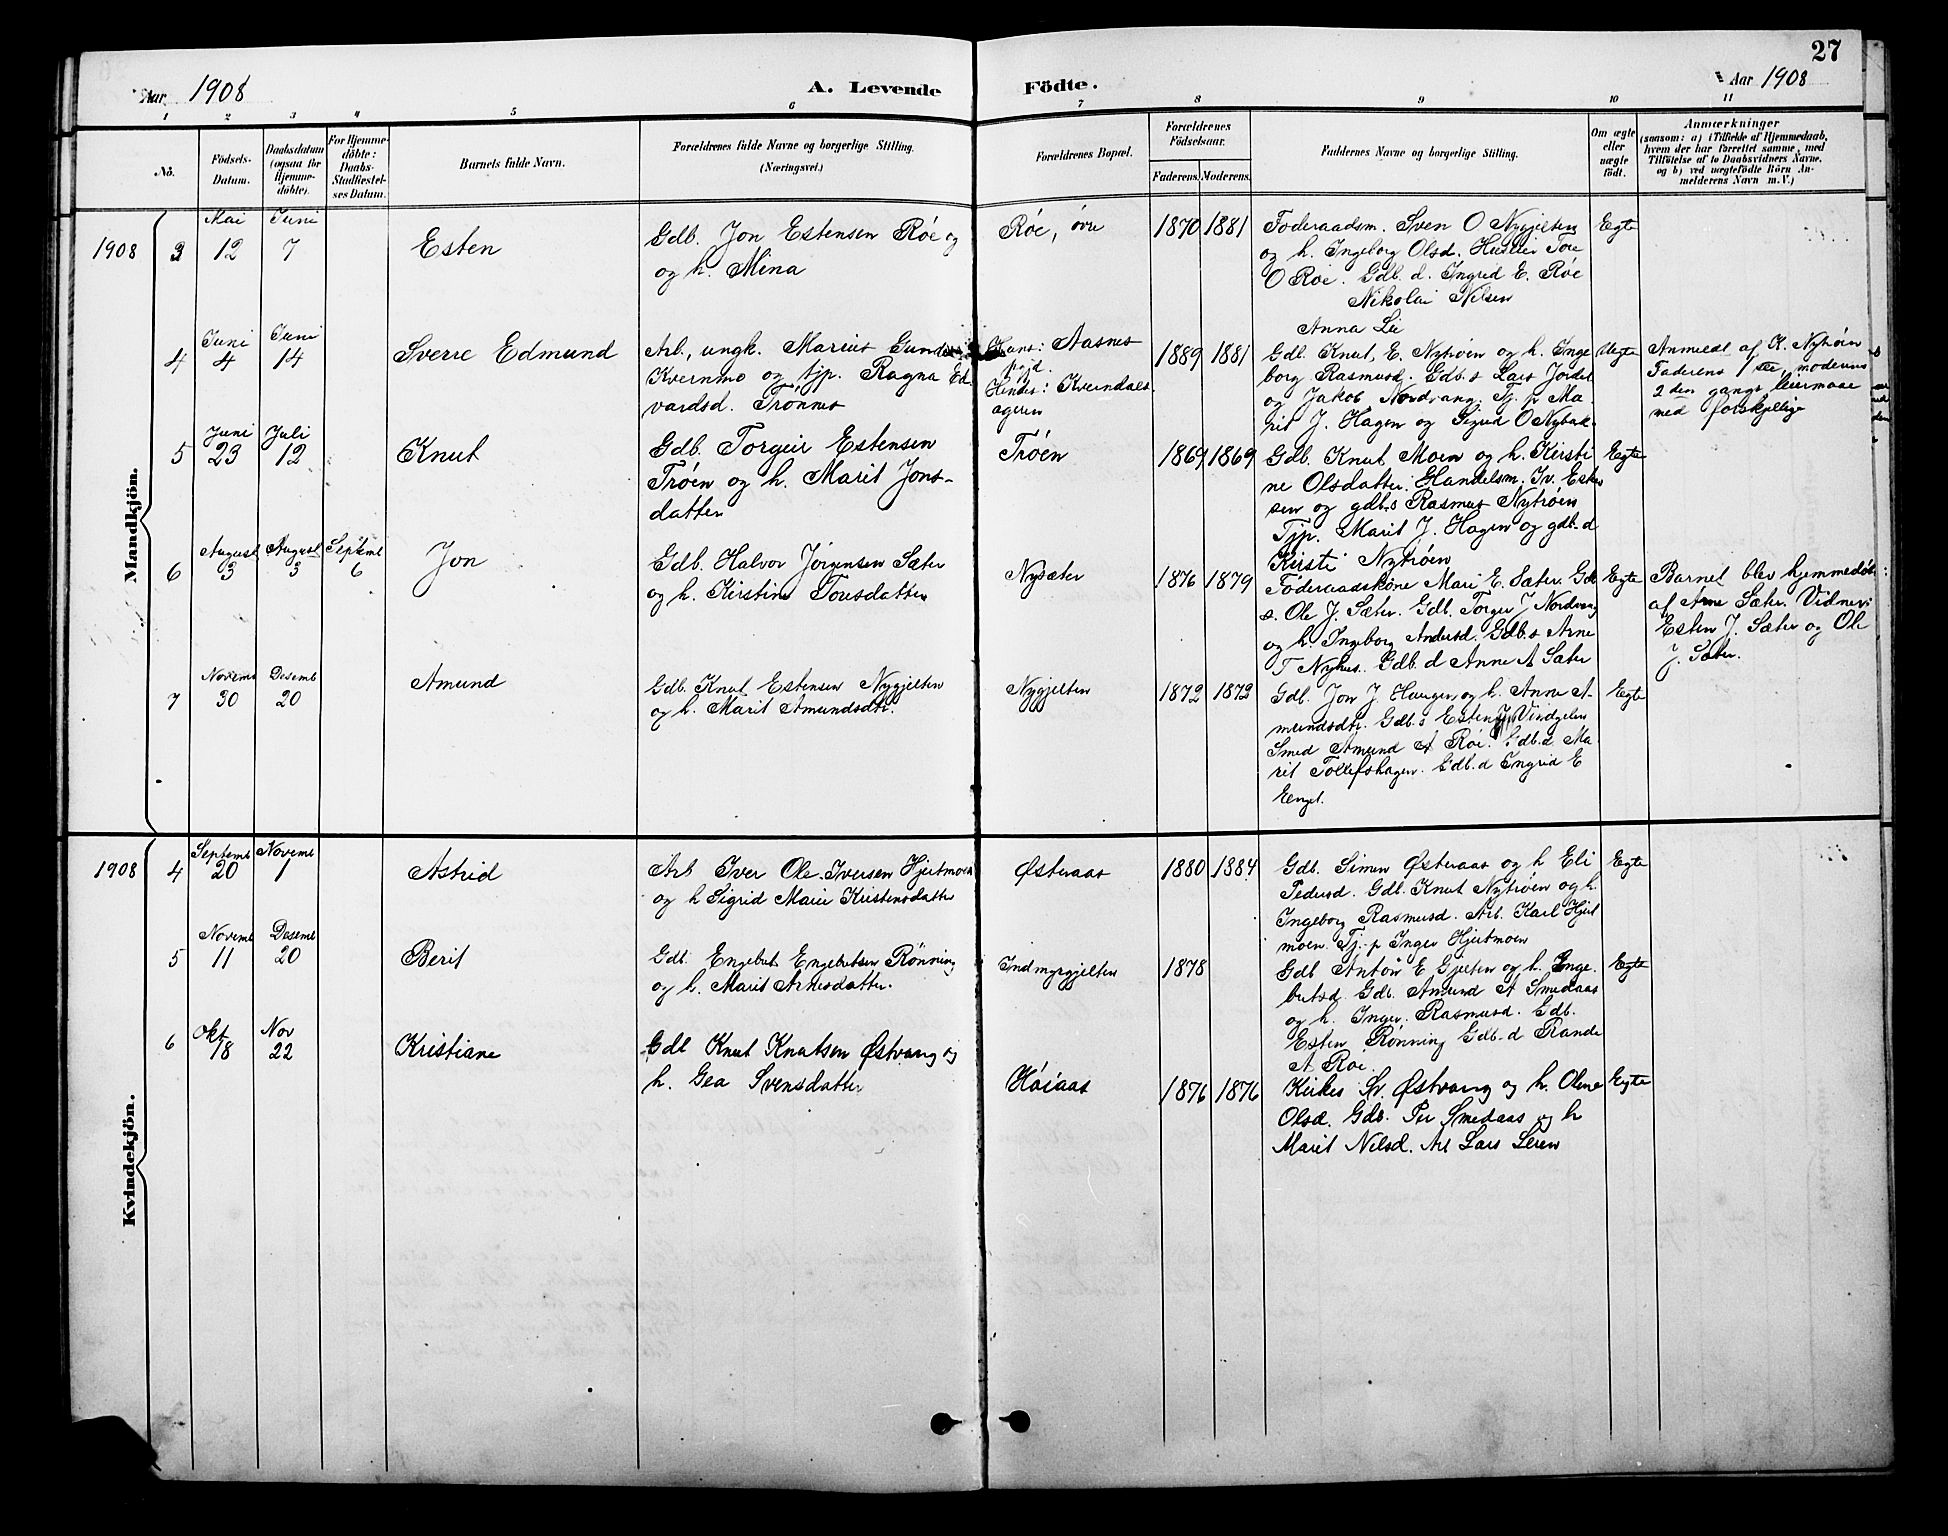 27
Aar 1908 A. Levende Födte. Aar 1908
1 2 3 4 5 6 7 8 9 10 11
No.
Födsels-
Datum.
Daabsdatum
(ogsaa for
Hjemme-
döbte).
For Hjemme-
döbte:
Daabs-
Stadfæstel-
ses Datum.
Barnets fulde Navn.
Forældrenes fulde Navne og borgerlige Stilling.
(Næringsvei.)
Forældrenes Bopæl.
Forældrenes
Födselsaar.
Faderens. Moderens.
Faddernes Navne og borgerlige Stilling.
Om ægte
eller
uægte
födt.
Anmærkninger
(saasom: a) i Tilfælde af Hjemmedaab,
hvem der har forrettet samme, med
Tilföielse af to Daabsvidners Navne,
og b) ved uægtefödte Börn An-
melderens Navn m. V.)
Mandkjön.
1908 3
Mai
12
Juni
7
Esten
Gdb. Jon Estensen Röe og
og h. Mina
Röe, övre
1870 1881
Föderaadsm. Sven O Nygjelten
og h. Ingeborg Olsd. Tore
O Röe. Gdb. d. Ingrid E. Röe
Nikolai Nilsen
Anna Lie
Egte
4
Juni
4
Juni
14
Sverre Edmund
Arb., ungk. Marius
Kvernmo og tjp. Ragna Ed-
vardsd. Trönnes
Hans: Aasnes
pgjd.
Hendes: Kverndals
ageren
1889 1881
Gdb. Knut E. Nytröen og h. Inge
borg Rasmusd. Gdb. s Lars Jordet
og Jakob Nordvang. Tj. p Ma-
rit J. Hagen og Sigrid O Nybak-
Uegte
Anmeldt af K. Nytröen
Faderens 1ste, moderens
2den gangs leiermaal
med forskjellige
5
Juni
23
Juli
12
Knut
Gdb. Torgeir Estensen
Tröen og h. Marit Jons-
datter
Tröen
1869 1869
Gdb. Knut Moen og h. Kirsti
ne Olsdatter. Handelsm. Iv. Esten
sen og gdb.s Rasmus Nytröen
Tjp. Marit J. Hagen og gdb. d
Kirsti Nytröen
Egte
6
August
3
August
3
Septemb
6
Jon
Gdb. Halvor Jörgensen Sæter
og h. Kirstine Toresdatter
Nysæter
1876 1879
Föderaadskone Mari E. Sæter. Gdb
s. Ole J. Sæter. Gdb. Torger J Nordvang
og h. Ingeborg Andersd. Gdb. s Arne
T Nyhus. Gdb. d Anne A Sæter
Egte
Barnet blev hjemmedöbt
af Arne Sæter. Vidner:
Esten J. Sæter og Ole
J. Sæter.
7
Novemb
30
Desemb
20
Amund
Gdb. Knut Estensen Nygjelten
og h. Marit Amundsdtr.
Nygjelten
1872 1872
Gdb. Jon J Haugen og h. Anne A-
mundsdtr. Gdb. s Esten J. Vindgelen
Smed Amund A Röe. Gdb. d Ma-
rit Tollefshagen. Gdb. d Ingrid E
Enget.
Egte
Kvindekjön.
1908 4
Septemb
20
Novemb
1
Astrid
Arb Iver Ole Iversen Hjertmoen
og h Sigrid Marie Kristensdatter
Østeraas
1880 1884
Gdb. Simen Østeraas og h Eli
Pedersd. Gdb. Knut Nytröen og h.
Ingeborg Rasmusd. Arb. Karl Hjert
moen. Tj.-p Inger Hjertmoen
Egte
5
Novemb
11
Desemb
20
Berit
Gdb. Engebret Engebretsen Rönning
og h. Marit Arnesdatter.
Indmyrgjelten
1878
Gdb Anton E Gjelten og h. Inge-
bretsd. Gdb. Amund A Smedaas
og h. Inger Rasmusd. Gdb.
Esten Rönning Gdb. d Rande
A Röe
Egte
6
Okt
18
Nov
22
Kristiane
Gdb Knut Knutsen Østvang og
h. Gea Svensdatter
Höiaas
1876 1876
Kirkes Sv. Østvang og h. Oline
Olsd. Gdb. Per Smedaas og h
Marit Nilsd. Arb Lars Leren
Egte